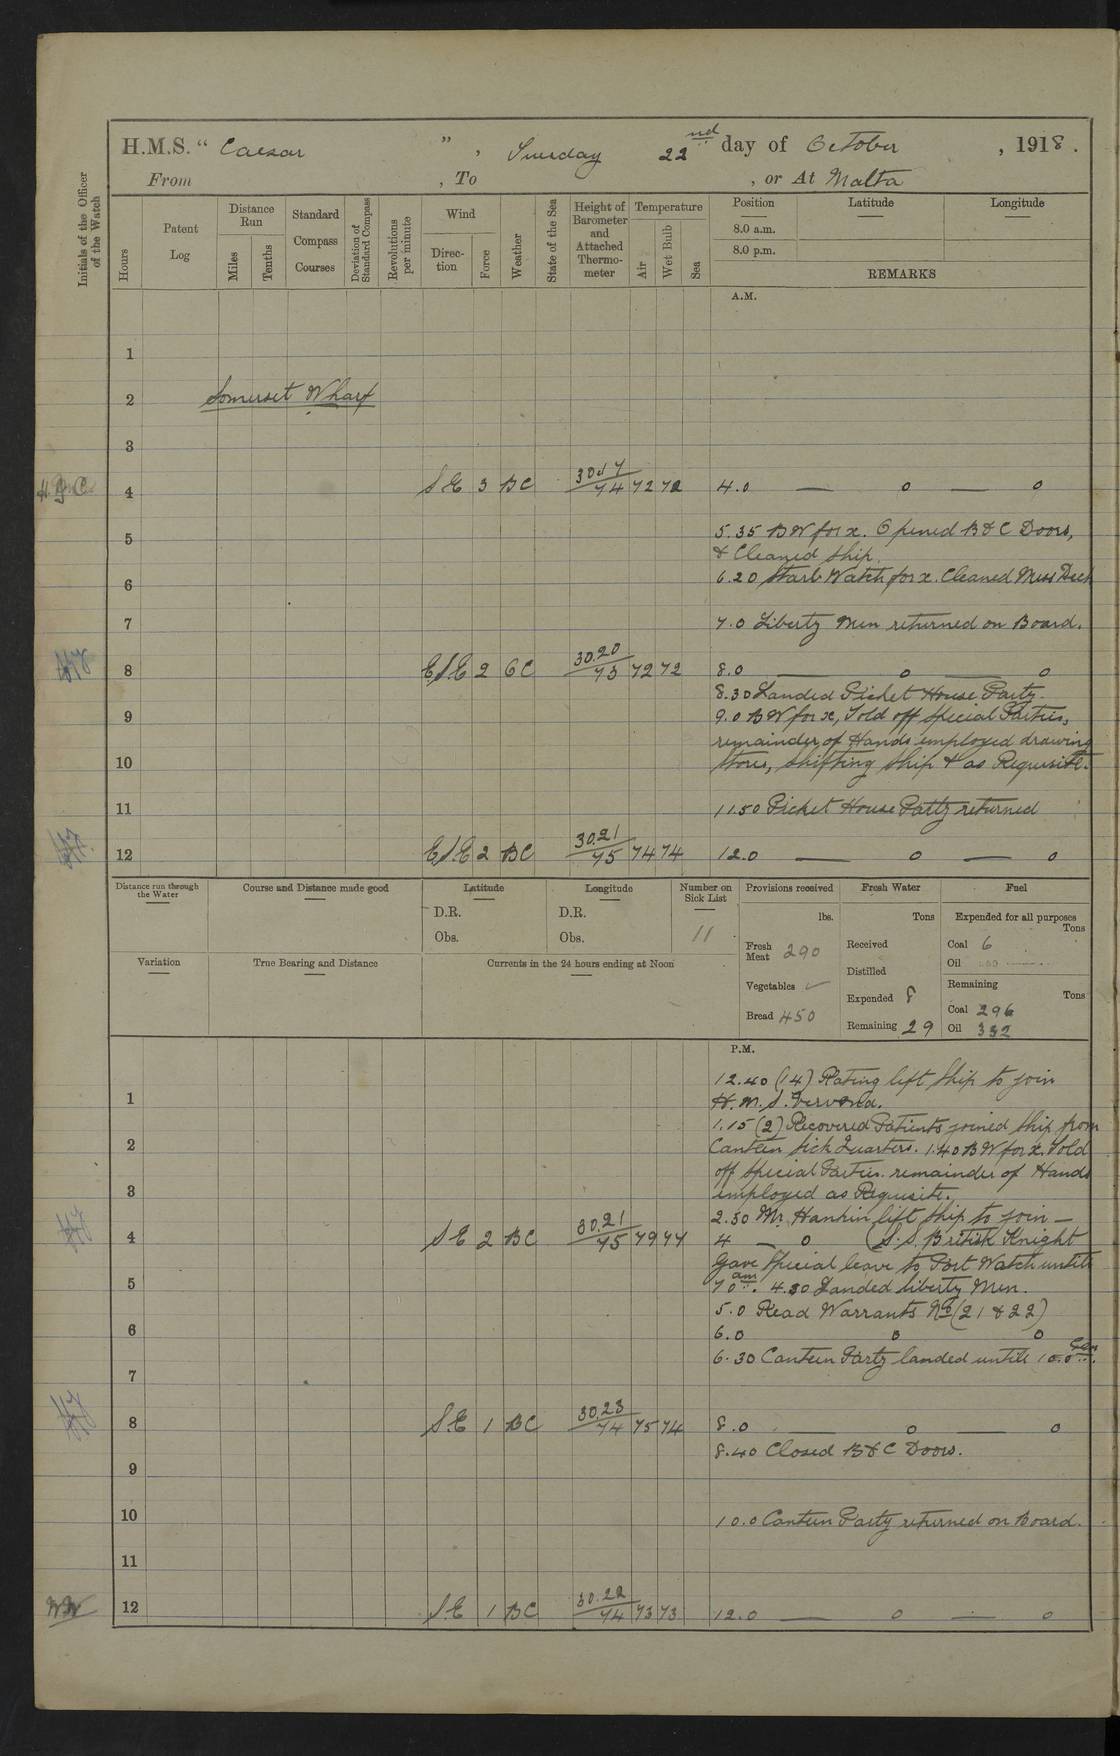 H.M.S. " Caesar " , Tuesday 22nd day of October , 1918 .
From , To , or At Malta
Initials of the Officer of the Watch
Hours
Patent Log
Distance Run
Miles
Tenths
Standard Compass Courses
Deviation of Standard Compass
Revolutions per minute
Wind
Direc-tion
Force
Weather
State of the Sea
Height of Barometer and Attached Thermo-meter
Temperature
Air
Wet Bulb
Sea
Position Latitude Longitude
8.0 a.m.
8.0 p.m.
REMARKS
A.M.
1
2 Somerset Wharf
3
4 S E 3 BC 30.17 / 74 72 72 4.0 — o — o
5 5.35 BW for x. Opened B & C Doors,
& Cleaned Ship.
6 6.20 Starb Watch for x. Cleaned Mess Deck
7 7.0 Liberty Men returned on Board.
8 ESE 2 BC 30.20 / 73 72 72 8.0 — o — o
8.30 Landed Picket House Party.
9 9.0 BW for x, Told off Special Parties,
remainder of Hands employed drawing
10 Stores, shifting ship & as Requisite.
11 11.50 Picket House Party returned
12 ESE 2 BC 30.21 / 75 74 74 12.0 — o — o
Distance run through the Water
Course and Distance made good
Latitude
D.R.
Obs.
Longitude
D.R.
Obs.
Number on Sick List
11
Variation
True Bearing and Distance
Currents in the 24 hours ending at Noon
Provisions received
lbs.
Fresh Meat 290
Vegetables ✓
Bread 450
Fresh Water
Tons
Received
Distilled
Expended 8
Remaining 29
Fuel
Expended for all purposes
Tons
Coal 6
Oil
Remaining
Tons
Coal 296
Oil 332
P.M.
12.40 (14) Rating left Ship to join
1 H.M.S.
1.15 (2) Recovered Patients joined ship from
2 Canteen Sick Quarters. 1.40 BW for x. Told
off Special Parties. remainder of Hands
3 employed as Requisite.
2.30 Mr. Hankin left Ship to join —
4 SE 2 BC 30.21 / 75 79 77 4 — o (S.S. British Knight
Gave Special leave to Port Watch until
5 7 0 am. 4.30 Landed liberty Men.
5.0 Read Warrants No (21 & 22)
6 6.0 o o
6.30 Canteen Party landed until 10.0
7
8 S.E 1 BC 30.23 / 74 75 74 8.0 — o — o
8.40 Closed B & C Doors.
9
10 10.0 Canteen Party returned on Board.
11
12 SE 1 BC 30.22 / 74 73 73 12.0 — o — o